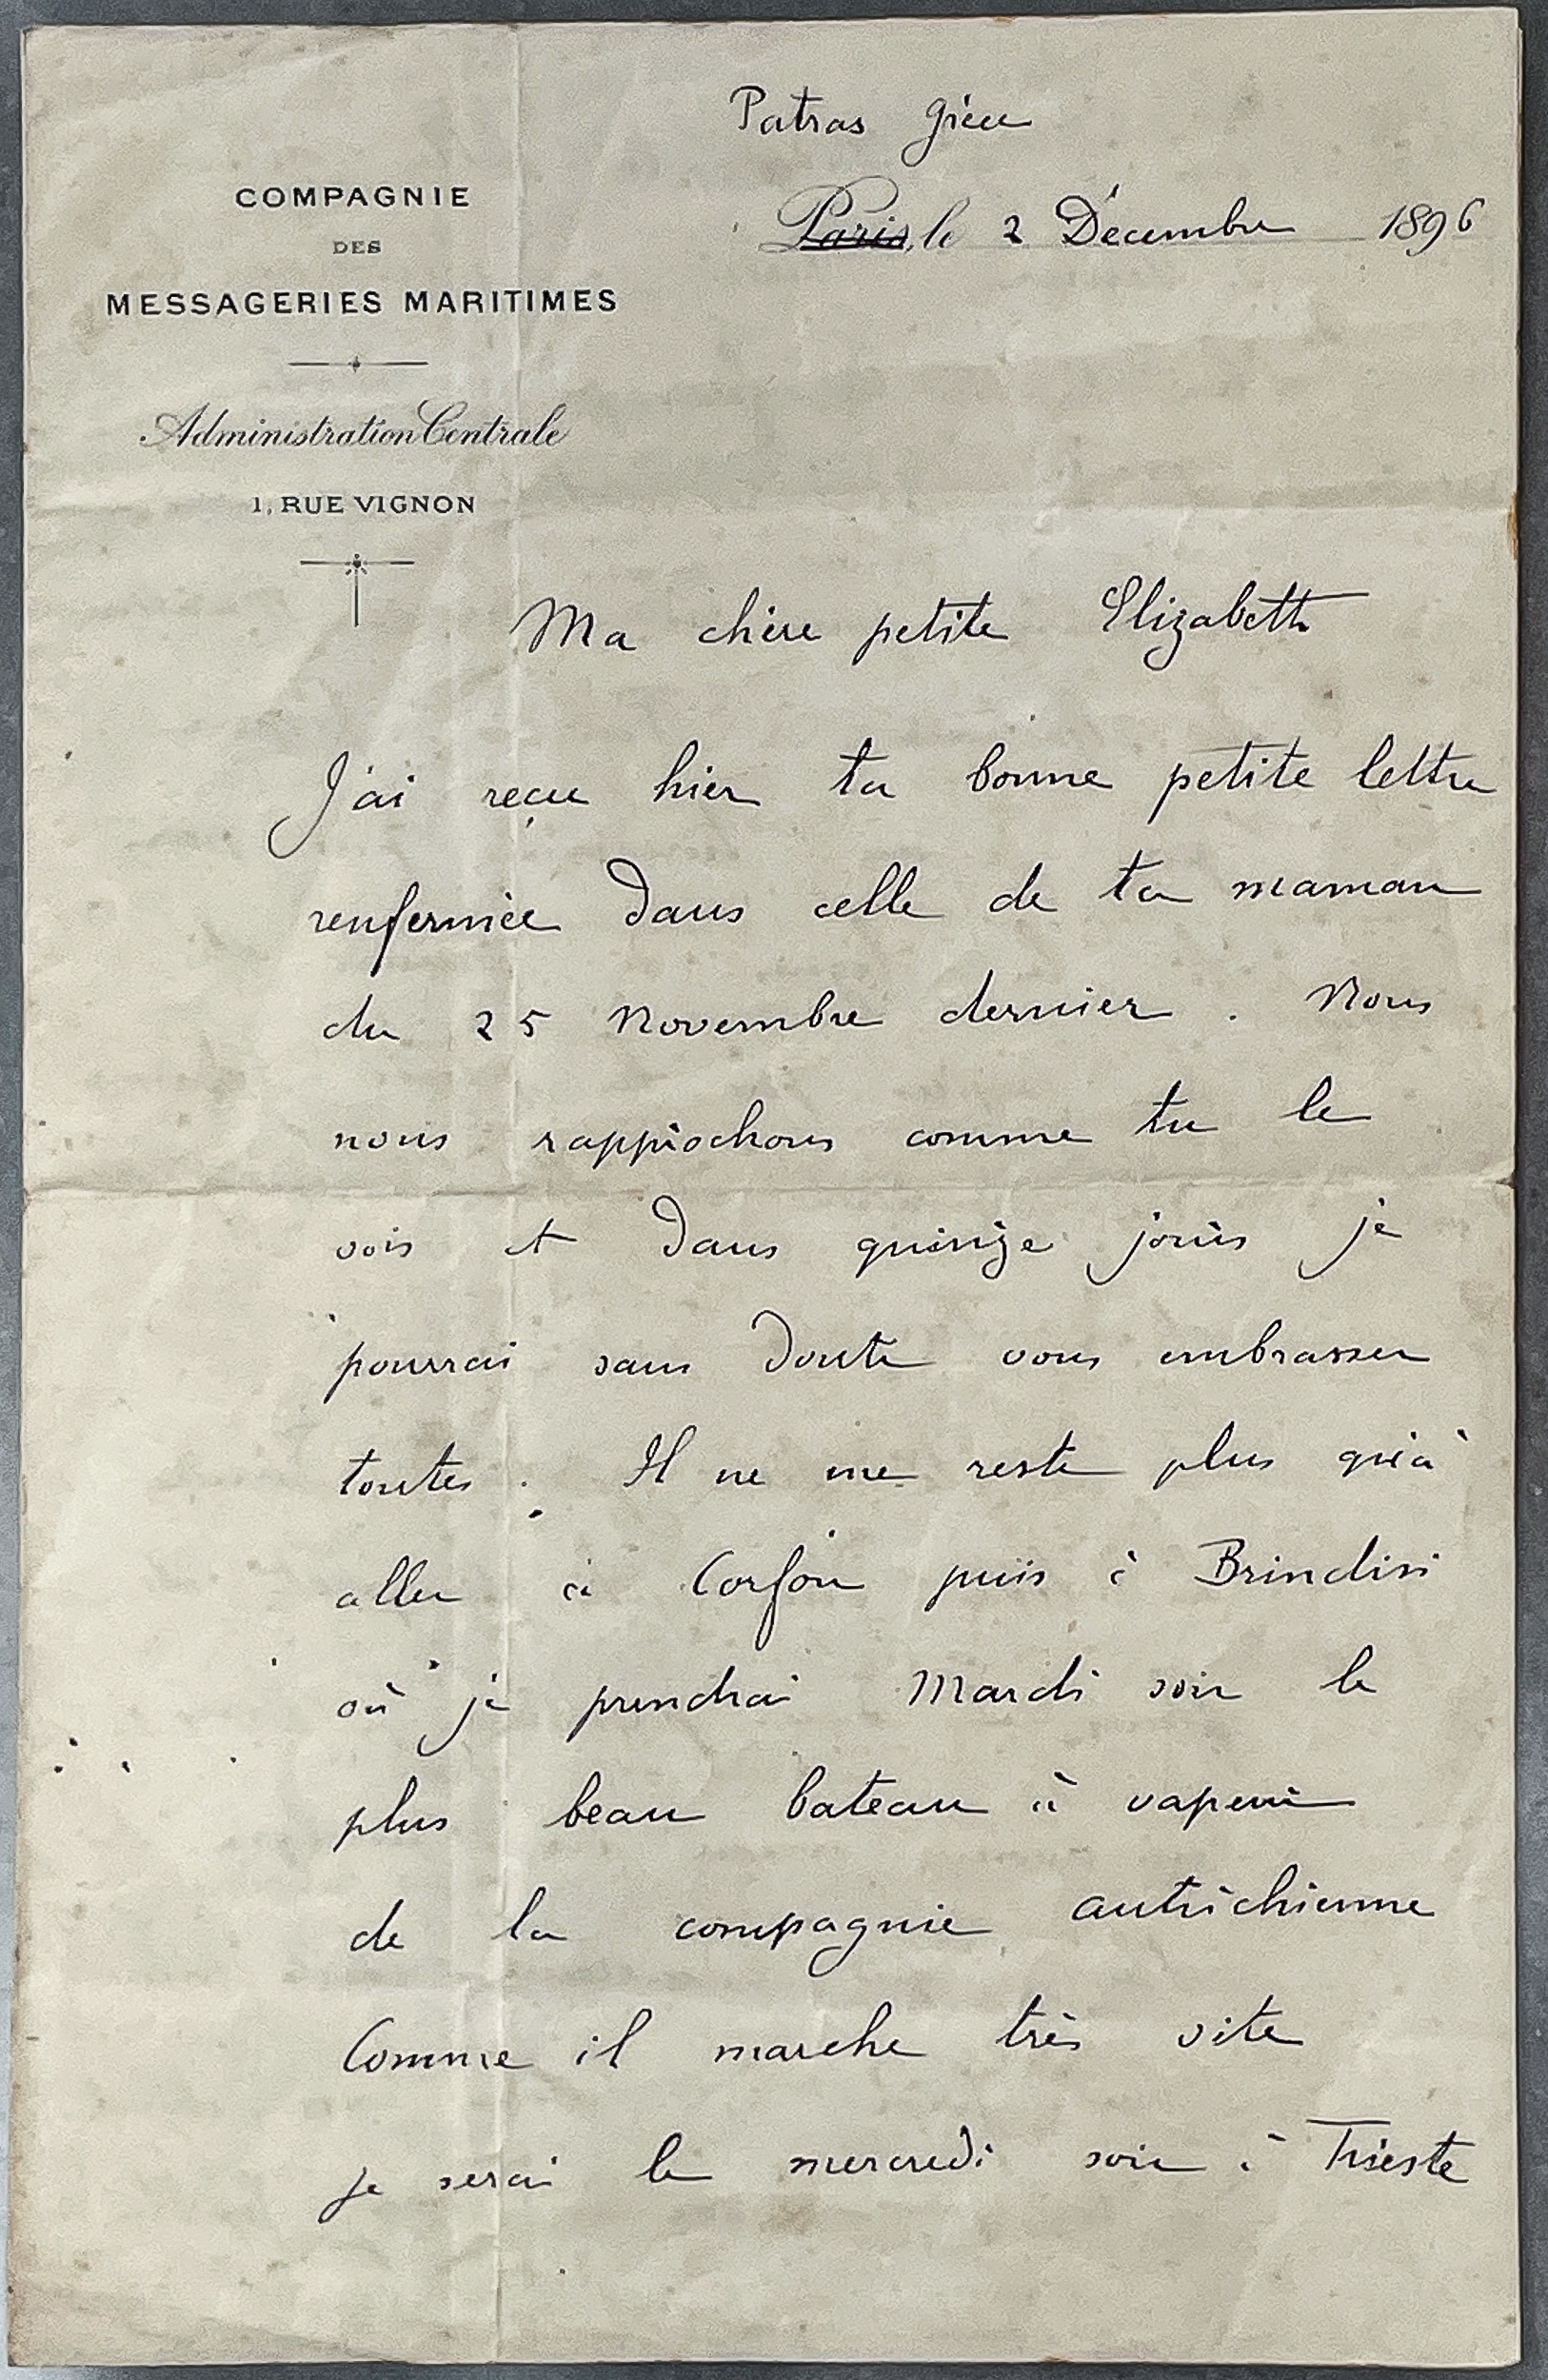 Patras Grèce
COMPAGNIE
DES
MESSAGERIES MARITIMES
Administration Centrale
1, RUE VIGNON
Paris, le 2 Décembre 1896
Ma chère petite Elizabeth
J'ai reçu hier ta bonne petite lettre
renfermée dans celle de ta maman
du 25 Novembre dernier. Nous
nous rapprochons comme tu le
vois et dans quinze jours je
pourrai sans doute vous embrasser
toutes. Il ne me reste plus qu'à
aller à Corfou puis à Brindisi
où je prendrai Mardi soir le
plus beau bateau à vapeur
de la compagnie autrichienne
Comme il marche très vite
je serai le mercredi soir à Trieste